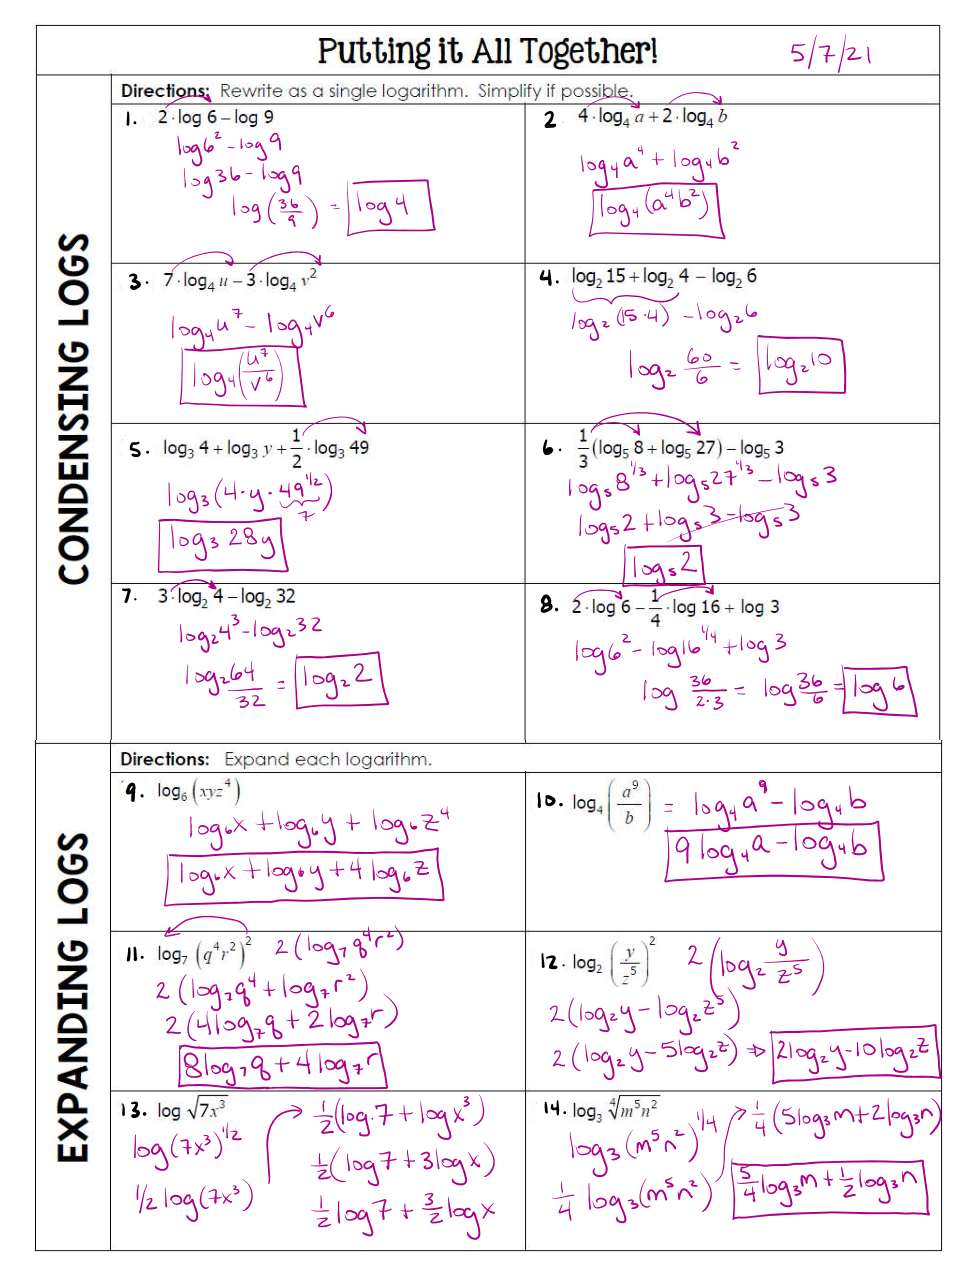 Putting it All Together!
5/7/21
CONDENSING LOGS
Directions: Rewrite as a single logarithm. Simplify if possible.
1. 2·log 6 − log 9
log6² - log9
log36 - log9
log(36/9) = log4
2 4·log₄ a + 2·log₄ b
log₄a⁴ + log₄b²
log₄(a⁴b²)
3. 7·log₄ u − 3·log₄ v²
log₄u⁷ - log₄v⁶
log₄(u⁷/v⁶)
4. log₂ 15 + log₂ 4 − log₂ 6
log₂(15·4) - log₂6
log₂ 60/6 = log₂10
5. log₃ 4 + log₃ y + 1/2 · log₃ 49
log₃(4·y·49^1/2)
7
log₃ 28y
6. 1/3(log₅ 8 + log₅ 27) − log₅ 3
log₅8^1/3 + log₅27^1/3 - log₅3
log₅2 + log₅3 - log₅3
log₅2
7. 3·log₂ 4 − log₂ 32
log₂4³ - log₂32
log₂64/32 = log₂2
8. 2·log 6 − 1/4·log 16 + log 3
log6² - log16^1/4 + log3
log 36/2·3 = log36/6 = log6
EXPANDING LOGS
Directions: Expand each logarithm.
9. log₆(xyz⁴)
log₆x + log₆y + log₆z⁴
log₆x + log₆y + 4log₆z
10. log₄(a⁹/b) = log₄a⁹ - log₄b
9log₄a - log₄b
11. log₇(q⁴r²)² 2(log₇q⁴r²)
2(log₇q⁴ + log₇r²)
2(4log₇q + 2log₇r)
8log₇q + 4log₇r
12. log₂(y/z⁵)² 2(log₂ y/z⁵)
2(log₂y - log₂z⁵)
2(log₂y - 5log₂z) ⇒ 2log₂y - 10log₂z
13. log √7x³
log(7x³)^1/2
1/2 log(7x³)
1/2(log7 + logx³)
1/2(log7 + 3logx)
1/2log7 + 3/2logx
14. log₃ ⁴√m⁵n²
log₃(m⁵n²)^1/4
1/4 log₃(m⁵n²)
1/4(5log₃m + 2log₃n)
5/4log₃m + 1/2log₃n